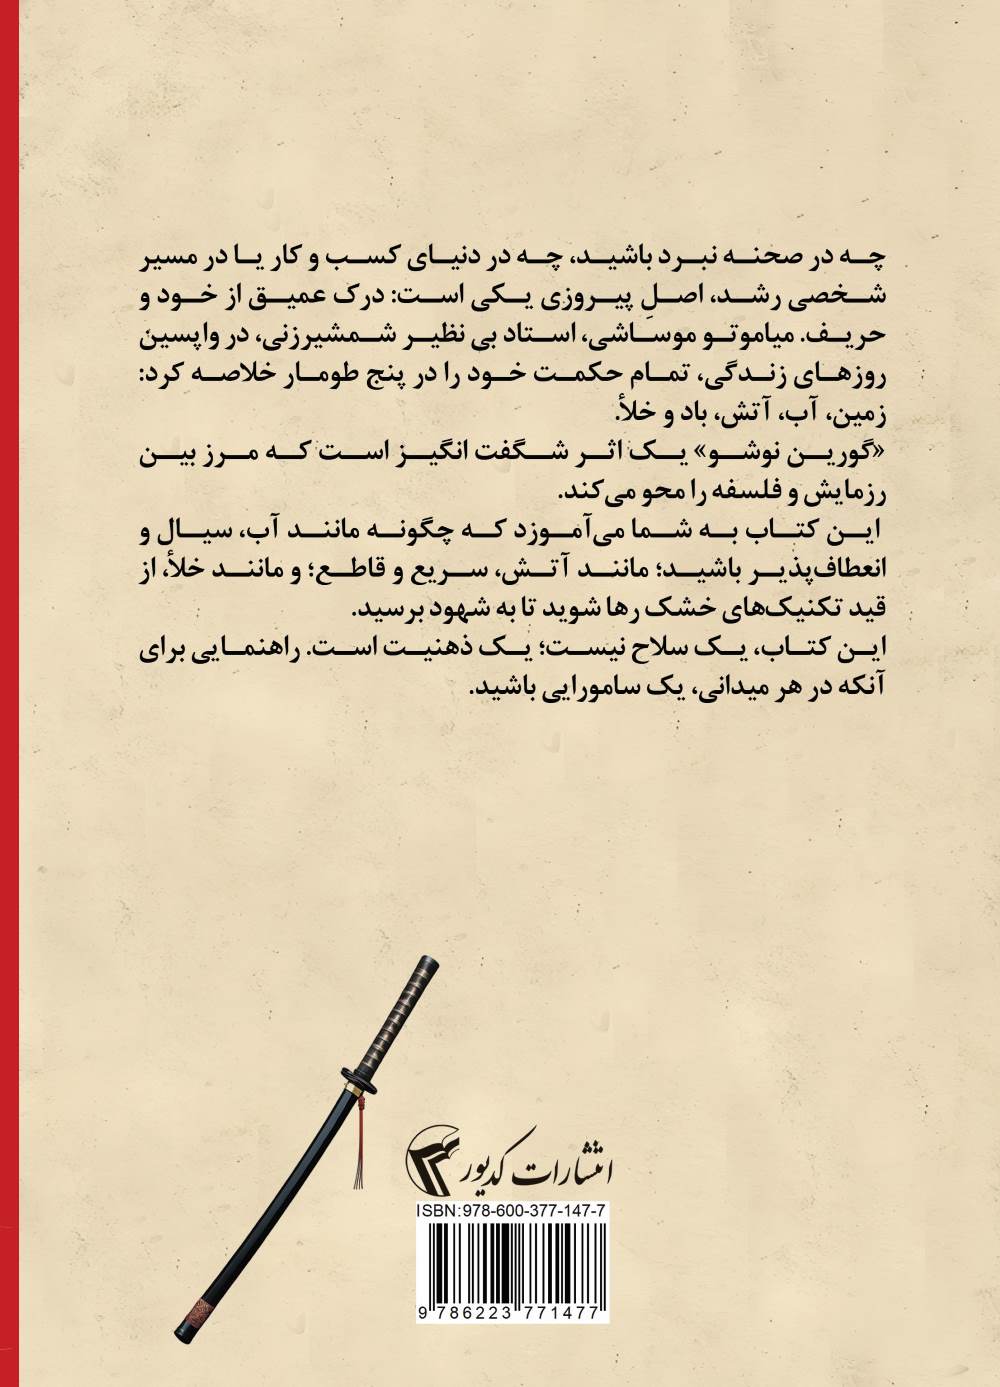 چه در صحنه نبرد باشید، چه در دنیای کسب و کار یا در مسیر
شخصی رشد، اصلِ پیروزی یکی است: درک عمیق از خود و
حریف. میاموتو موساشی، استاد بی نظیر شمشیرزنی، در واپسین
روزهای زندگی، تمام حکمت خود را در پنج طومار خلاصه کرد:
زمین، آب، آتش، باد و خلأ.
«گورین نوشو» یک اثر شگفت انگیز است که مرز بین
رزمایش و فلسفه را محو می‌کند.
این کتاب به شما می‌آموزد که چگونه مانند آب، سیال و
انعطاف‌پذیر باشید؛ مانند آتش، سریع و قاطع؛ و مانند خلأ، از
قید تکنیک‌های خشک رها شوید تا به شهود برسید.
این کتاب، یک سلاح نیست؛ یک ذهنیت است. راهنمایی برای
آنکه در هر میدانی، یک سامورایی باشید.
انتشارات کدیور
ISBN:978-600-377-147-7
9 786223 771477